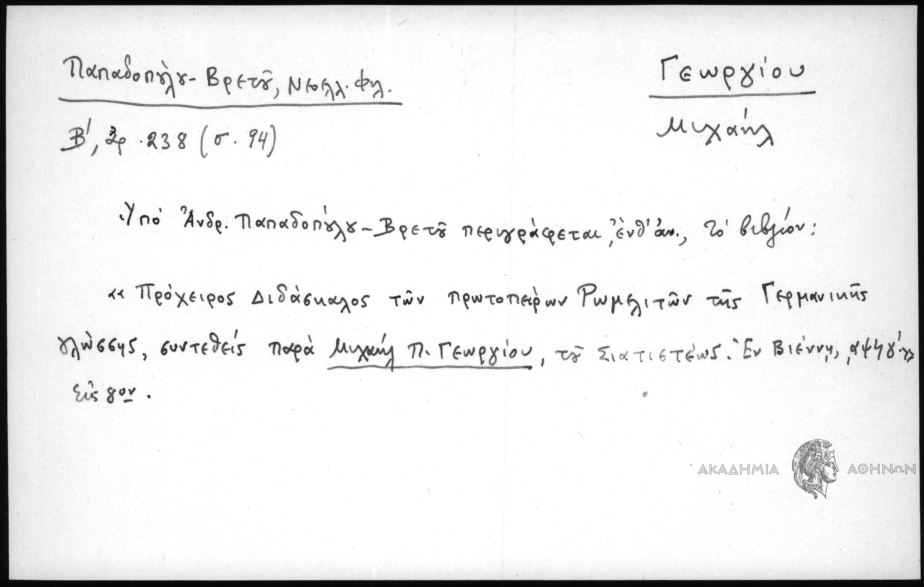 Παπαδοπούλου-Βρετοῦ, Νεοελλ. Φιλ.
Γεωργίου
Β', ἀρ. 238 (σ. 94)
Μιχαήλ
Ὑπὸ Ἀνδρ. Παπαδοπούλου-Βρετοῦ περιγράφεται, ἔνθ' ἀν., τὸ βιβλίον:
«Πρόχειρος Διδάσκαλος τῶν πρωτοπείρων Ρωμελιτῶν τῆς Γερμανικῆς
γλώσσης, συντεθεὶς παρὰ Μιχαὴλ Π. Γεωργίου, τοῦ Σιατιστέως. Ἐν Βιέννῃ, ͵αψϟγ'»
εἰς 8ον.
ΑΚΑΔΗΜΙΑ ΑΘΗΝΩΝ